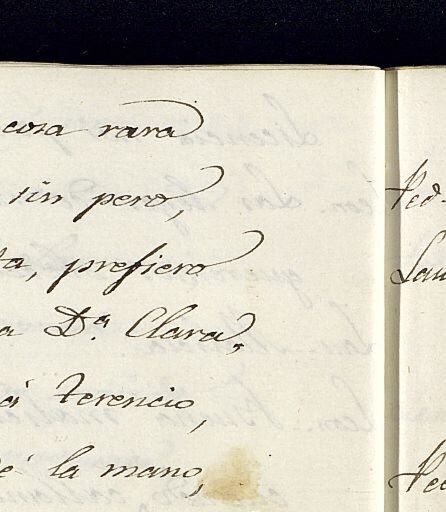 cosa rara
sin pero,
ta, prefiero
a D.ª Clara,
á Terencio,
é la mano,
Ped.
Lau
Ped